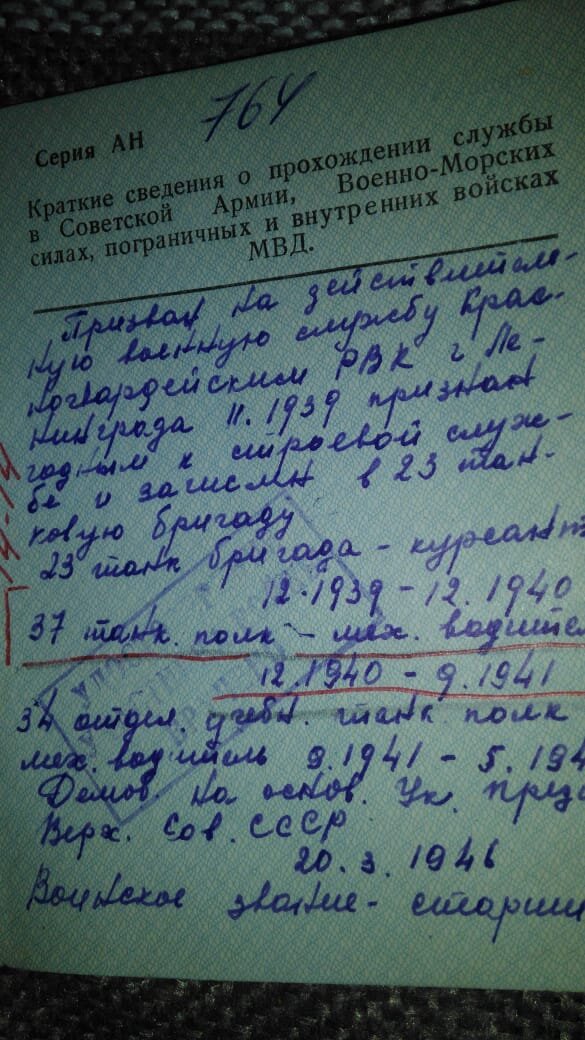 764
Серия АН
Краткие сведения о прохождении службы
в Советской Армии, Военно-Морских
силах, пограничных и внутренних войсках
МВД.
Призван на действитель-
ную военную службу Крас-
ногвардейским РВК г Ле-
нинграда 11.1939 признан
годным к строевой служ-
бе и зачислен в 23 тан-
ковую бригаду
23 танк бригада - курсант
12.1939 - 12.1940
37 танк. полк - мех. водител
12.1940 - 9.1941
34 отдел. учебн. танк. полк
мех. водитель 9.1941 - 5.194
Демоб. на основ. Ук. през
Верх. Сов. СССР
20.3.1946
Воинское звание - старши